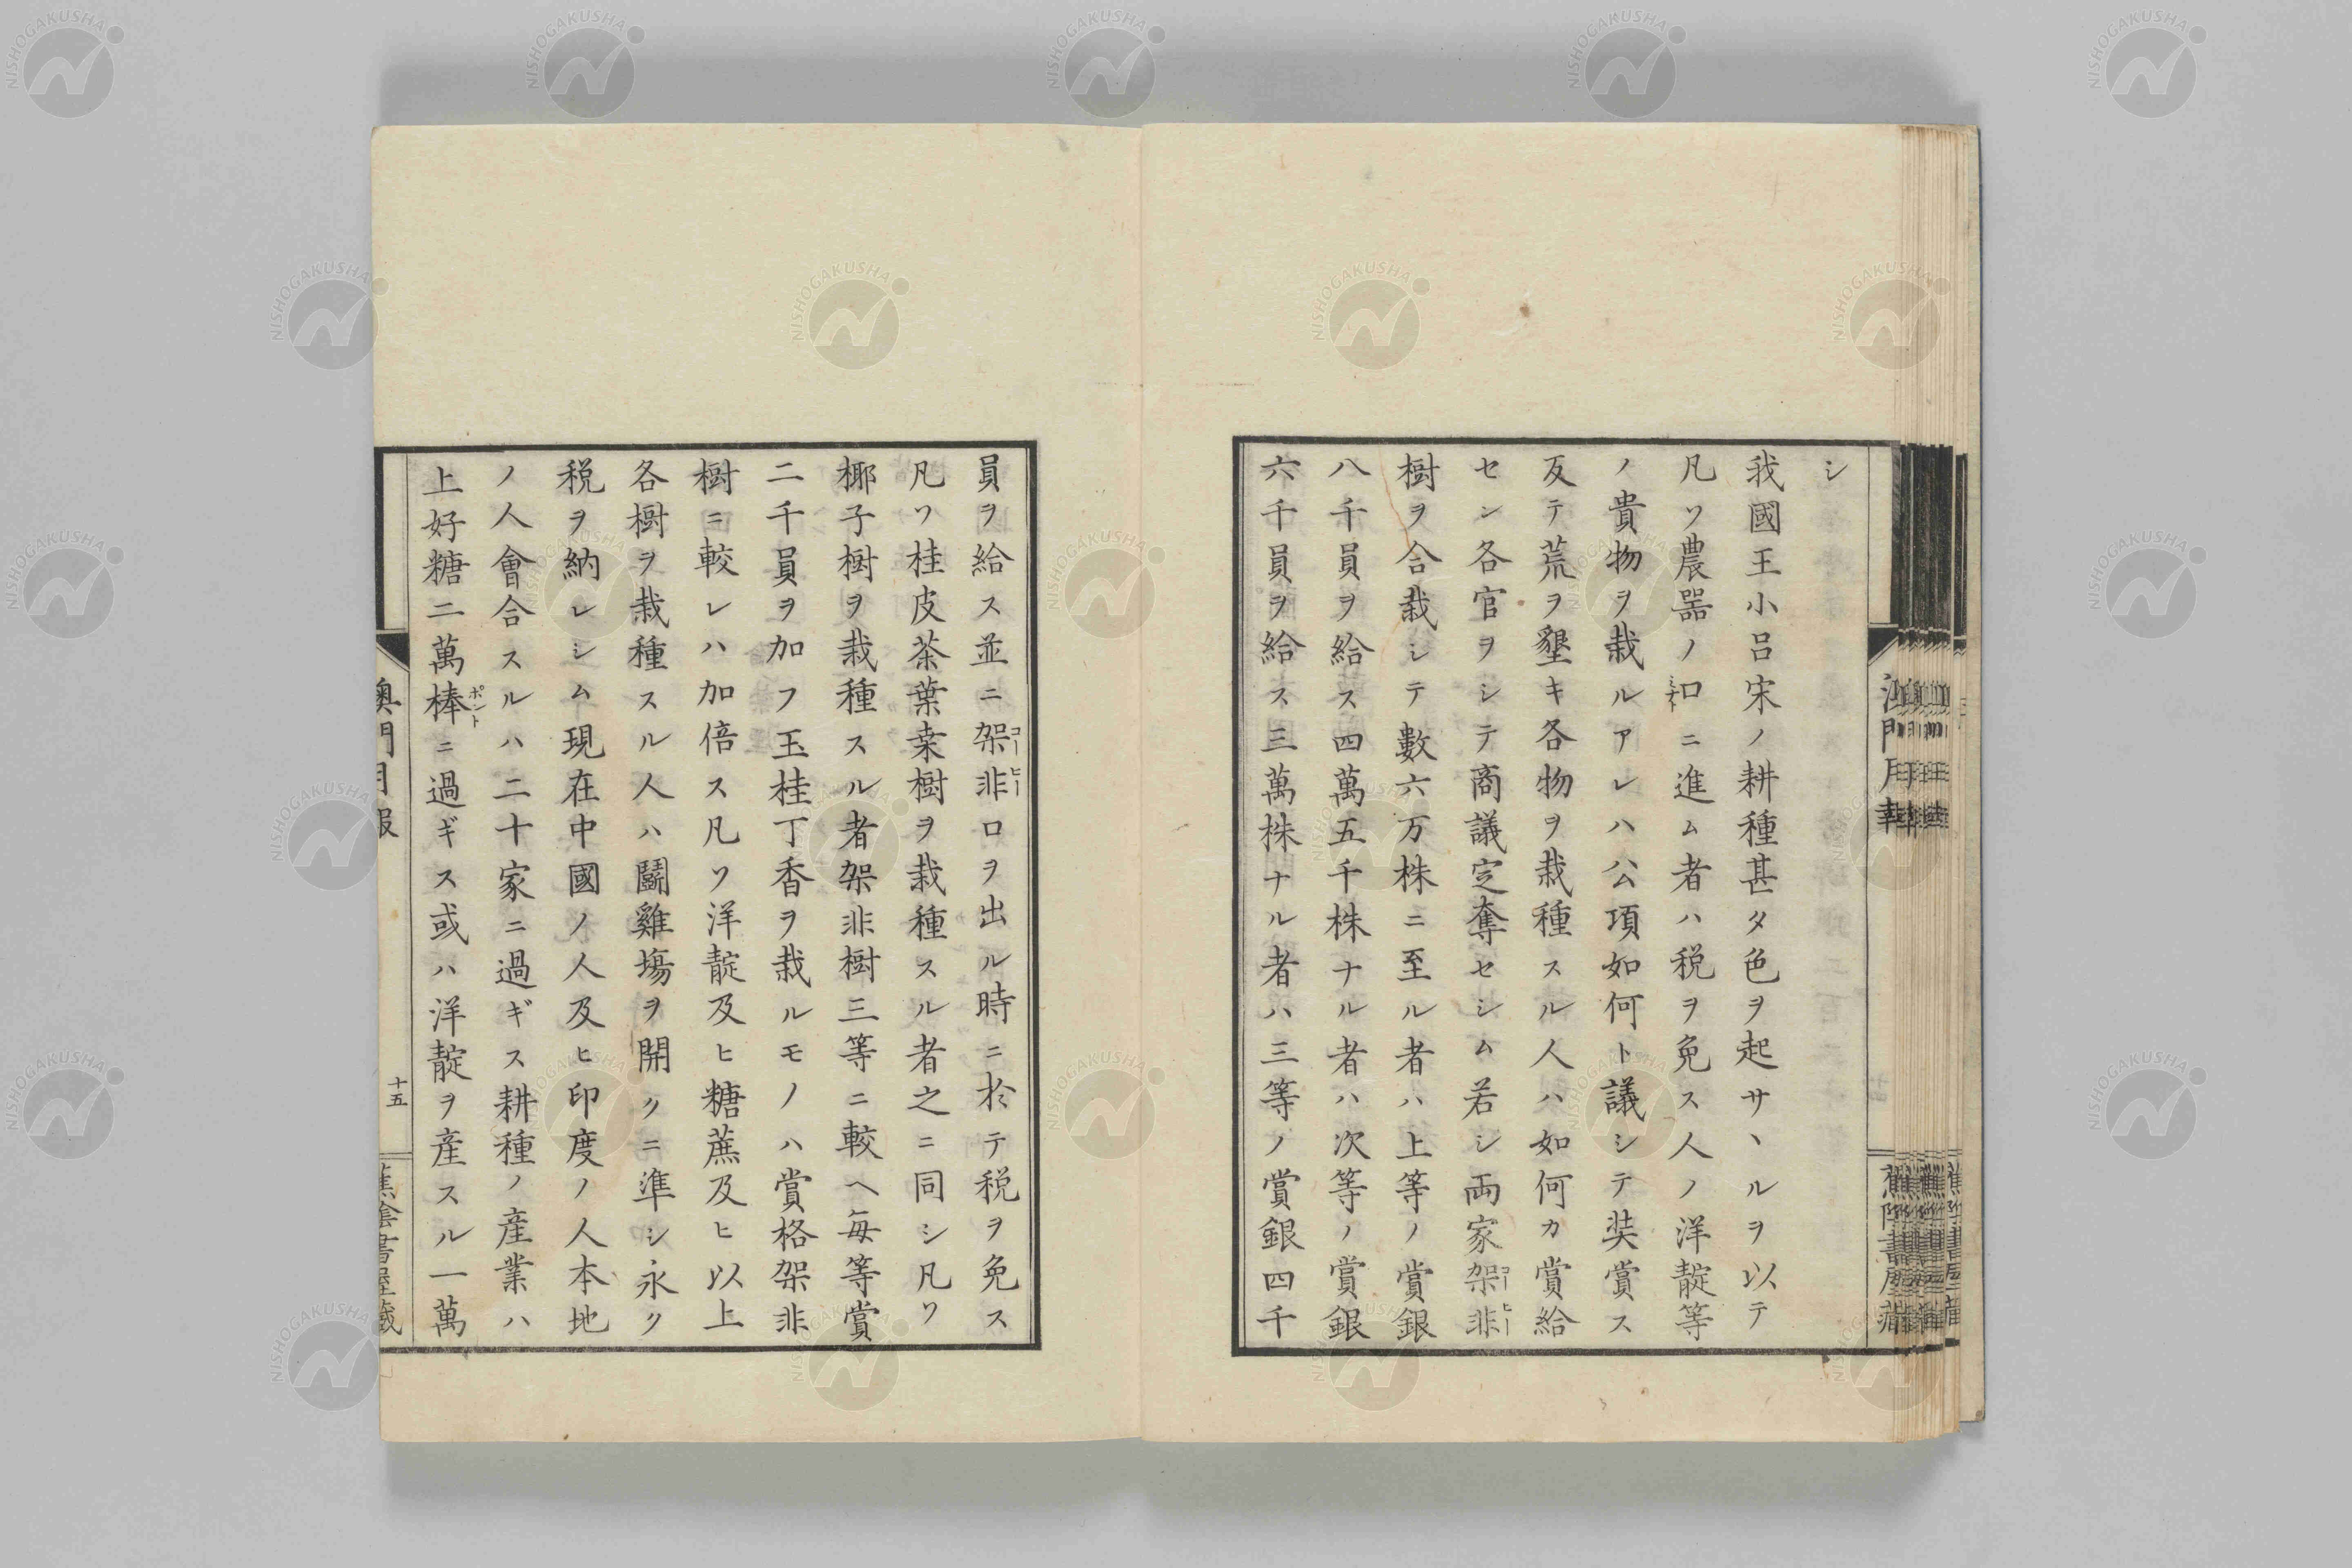 シ
我國王小呂宋ノ耕種甚タ色ヲ起サヽルヲ以テ
凡ソ農噐ノ口ニ進ム者ハ税ヲ免ス人ノ洋靛等
ノ貴物ヲ栽ルアレハ公項如何ト議シテ奘賞ス
反テ荒ヲ墾キ各物ヲ栽種スル人ハ如何カ賞給
セン各官ヲシテ商議定奪セシム若シ両家架非
コーヒー
樹ヲ合栽シテ數六万株ニ至ル者ハ上等ノ賞銀
八千員ヲ給ス四萬五千株ナル者ハ次等ノ賞銀
六千員ヲ給ス三萬株ナル者ハ三等ノ賞銀四千
澳門月報
蕉陰書屋藏
員ヲ給ス並ニ架非口ヲ出ル時ニ於テ税ヲ免ス
コーヒー
凡ソ桂皮茶葉桒樹ヲ栽種スル者之ニ同シ凡ソ
椰子樹ヲ栽種スル者架非樹三等ニ較ヘ毎等賞
二千員ヲ加フ玉桂丁香ヲ栽ルモノハ賞格架非
樹ニ較レハ加倍ス凡ソ洋靛及ヒ糖蔗及ヒ以上
各樹ヲ栽種スル人ハ鬪雞塲ヲ開クニ準シ永ク
税ヲ納レシム現在中國ノ人及ヒ印度ノ人本地
ノ人會合スルハ二十家ニ過ギス耕種ノ産業ハ
上好糖二萬棒ニ過ギス或ハ洋靛ヲ産スル一萬
ポント
澳門月報
十五
蕉陰書屋藏
NISHOGAKUSHA